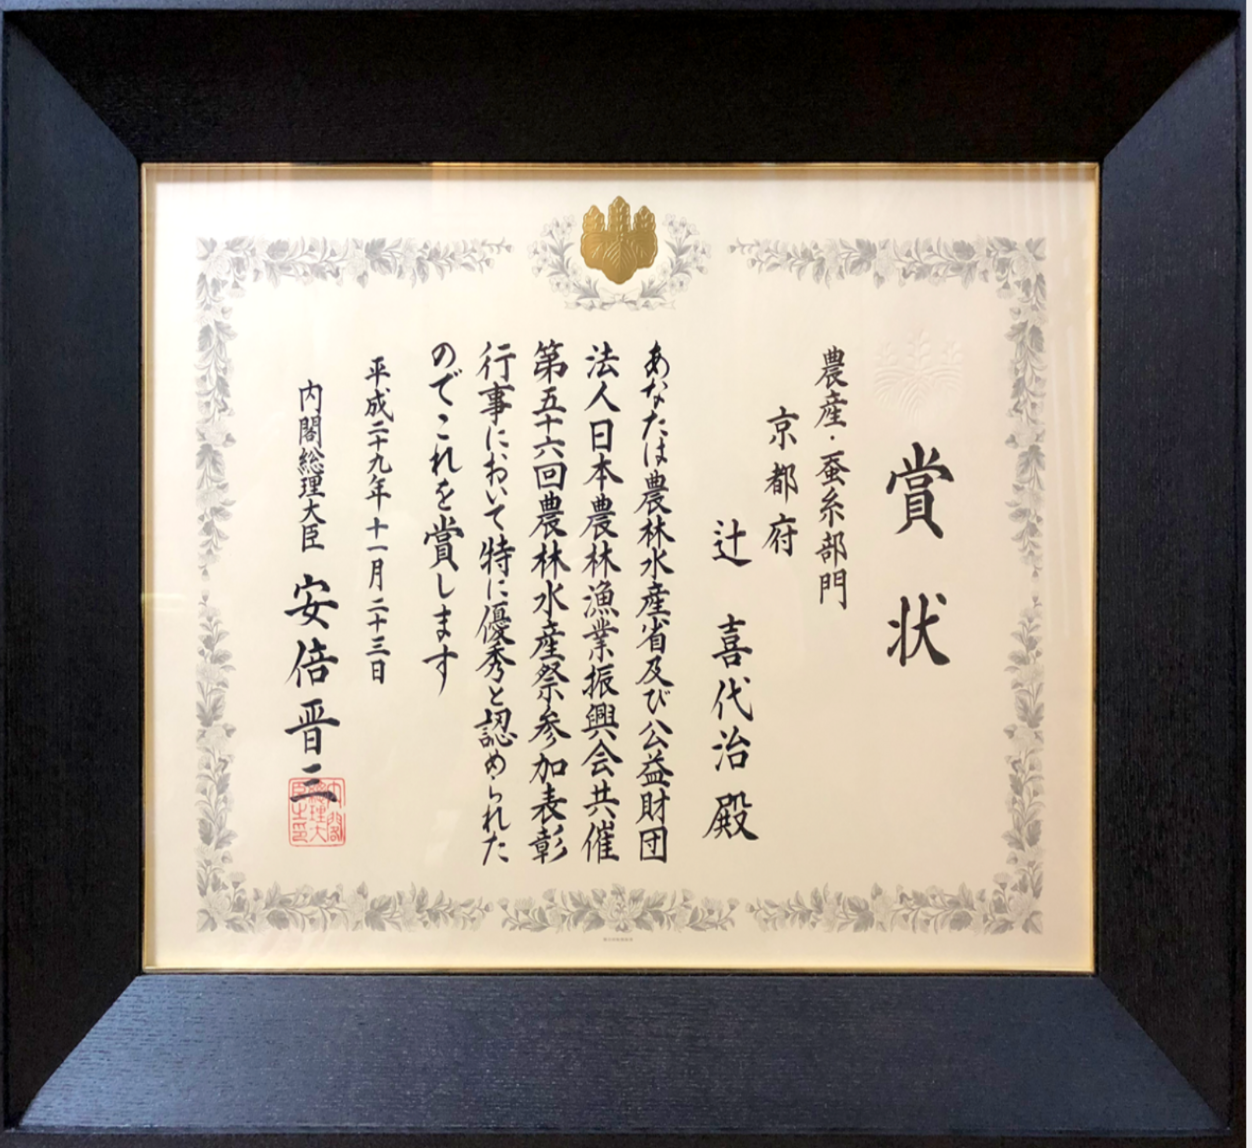 賞状
農産・蚕糸部門
京都府
辻 喜代治 殿
あなたは農林水産省及び公益財団
法人日本農林漁業振興会共催
第五十六回農林水産祭参加表彰
行事において特に優秀と認められた
のでこれを賞します
平成二十九年十一月二十三日
内閣総理大臣 安倍晋三
内閣總理大臣之印